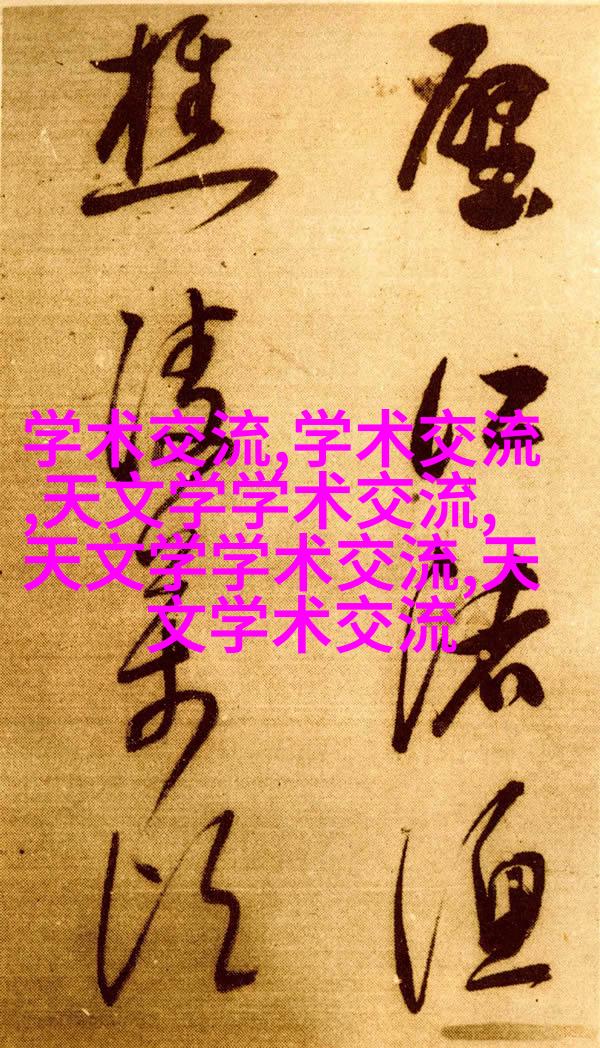 江渚漁
樵清
学术交流,学术交流
,天文学学术交流,
天文学学术交流,天
文学术交流